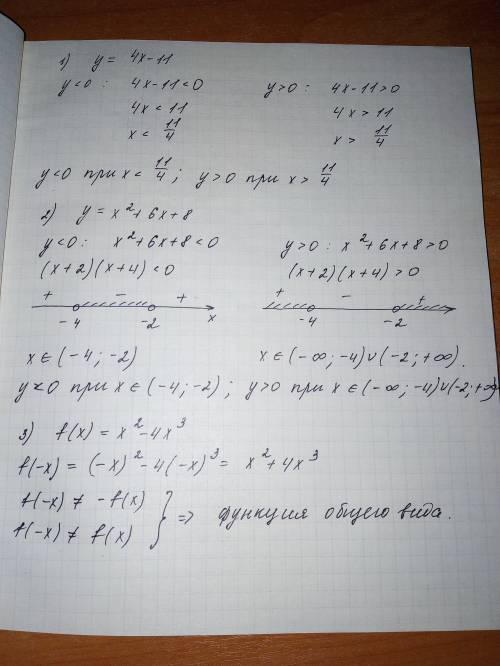 1) y = 4x-11
y<0 : 4x-11<0 y>0 : 4x-11>0
4x<11 4x>11
x< 11/4 x> 11/4
y<0 при x< 11/4 ; y>0 при x> 11/4
2) y = x²+6x+8
y<0 : x²+6x+8<0 y>0 : x²+6x+8>0
(x+2)(x+4)<0 (x+2)(x+4)>0
+ - + + - +
-4 -2 x -4 -2
x∈(-4;-2) x∈(-∞;-4)∪(-2;+∞).
y<0 при x∈(-4;-2); y>0 при x∈(-∞;-4)∪(-2;+∞)
3) f(x) = x²-4x³
f(-x) = (-x)²-4(-x)³ = x²+4x³
f(-x) ≠ -f(x)
f(-x) ≠ f(x) } => функция общего вида.